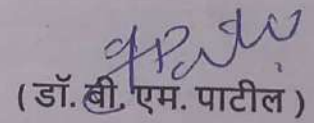 (डॉ. बी. एम. पाटील)